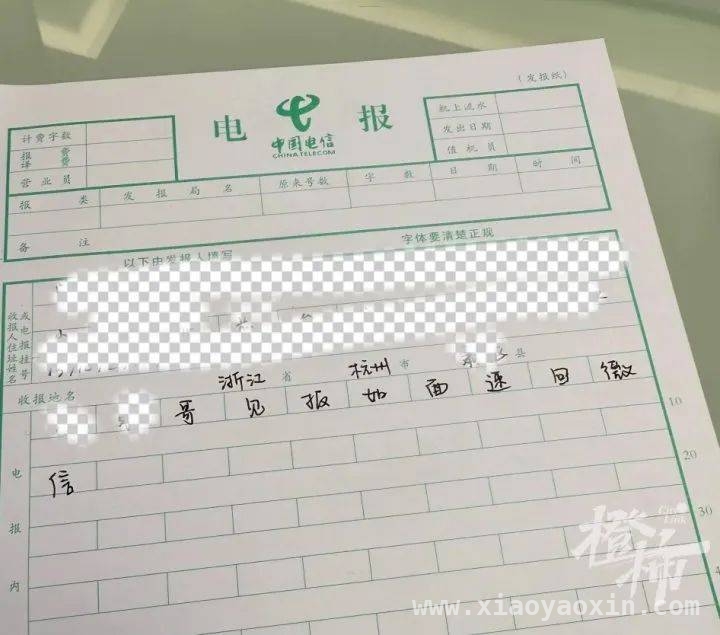 (发报纸)
计费字数
报费
译费
营业员
电 报
中国电信
CHINA TELECOM
机上流水
发出日期
值机员
报类 发报局名 原来号数 字数 日期 时间
备注
以下由发报人填写 字体要清楚正规
收报人住址姓名
或电报挂号
收报地名 浙江 省 杭州 市 县
哥见报如面速回微 10
信
20
30
电报内
橙柿
City Link
www.xiaoyaoxin.com